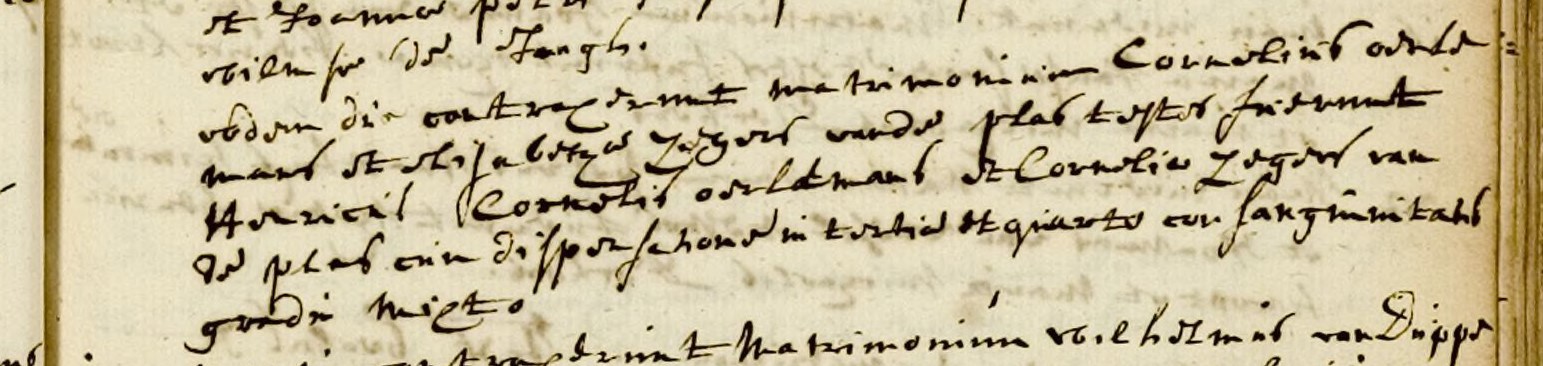 et Joannæ
wilmse de Jongh.
eodem die contraxerunt matrimonium Cornelius oerle=
mans et elisabetæ zegers vande plas testes fuerunt
Henricus Cornelis oerlemans et Cornelia zegers van
de plas cum dispensatione in tertio et quarto consanguinitatis
gradu mixto
contraxerunt Matrimonium wilhelmus van Duppe